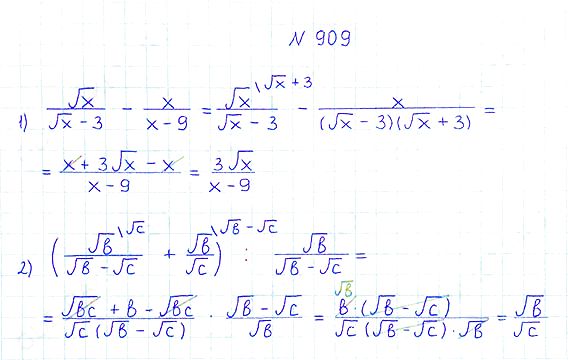 N 909
1) √x / (√x - 3) - x / (x - 9) = √x \ √x + 3 / (√x - 3) - x / ((√x - 3)(√x + 3)) =
= (x + 3√x - x) / (x - 9) = 3√x / (x - 9)
2) (√b \ √c / (√b - √c) + √b / √c \ √b - √c) : √b / (√b - √c) =
= (√bc + b - √bc) / (√c (√b - √c)) · (√b - √c) / √b = √b b · (√b - √c) / (√c (√b - √c) · √b) = √b / √c